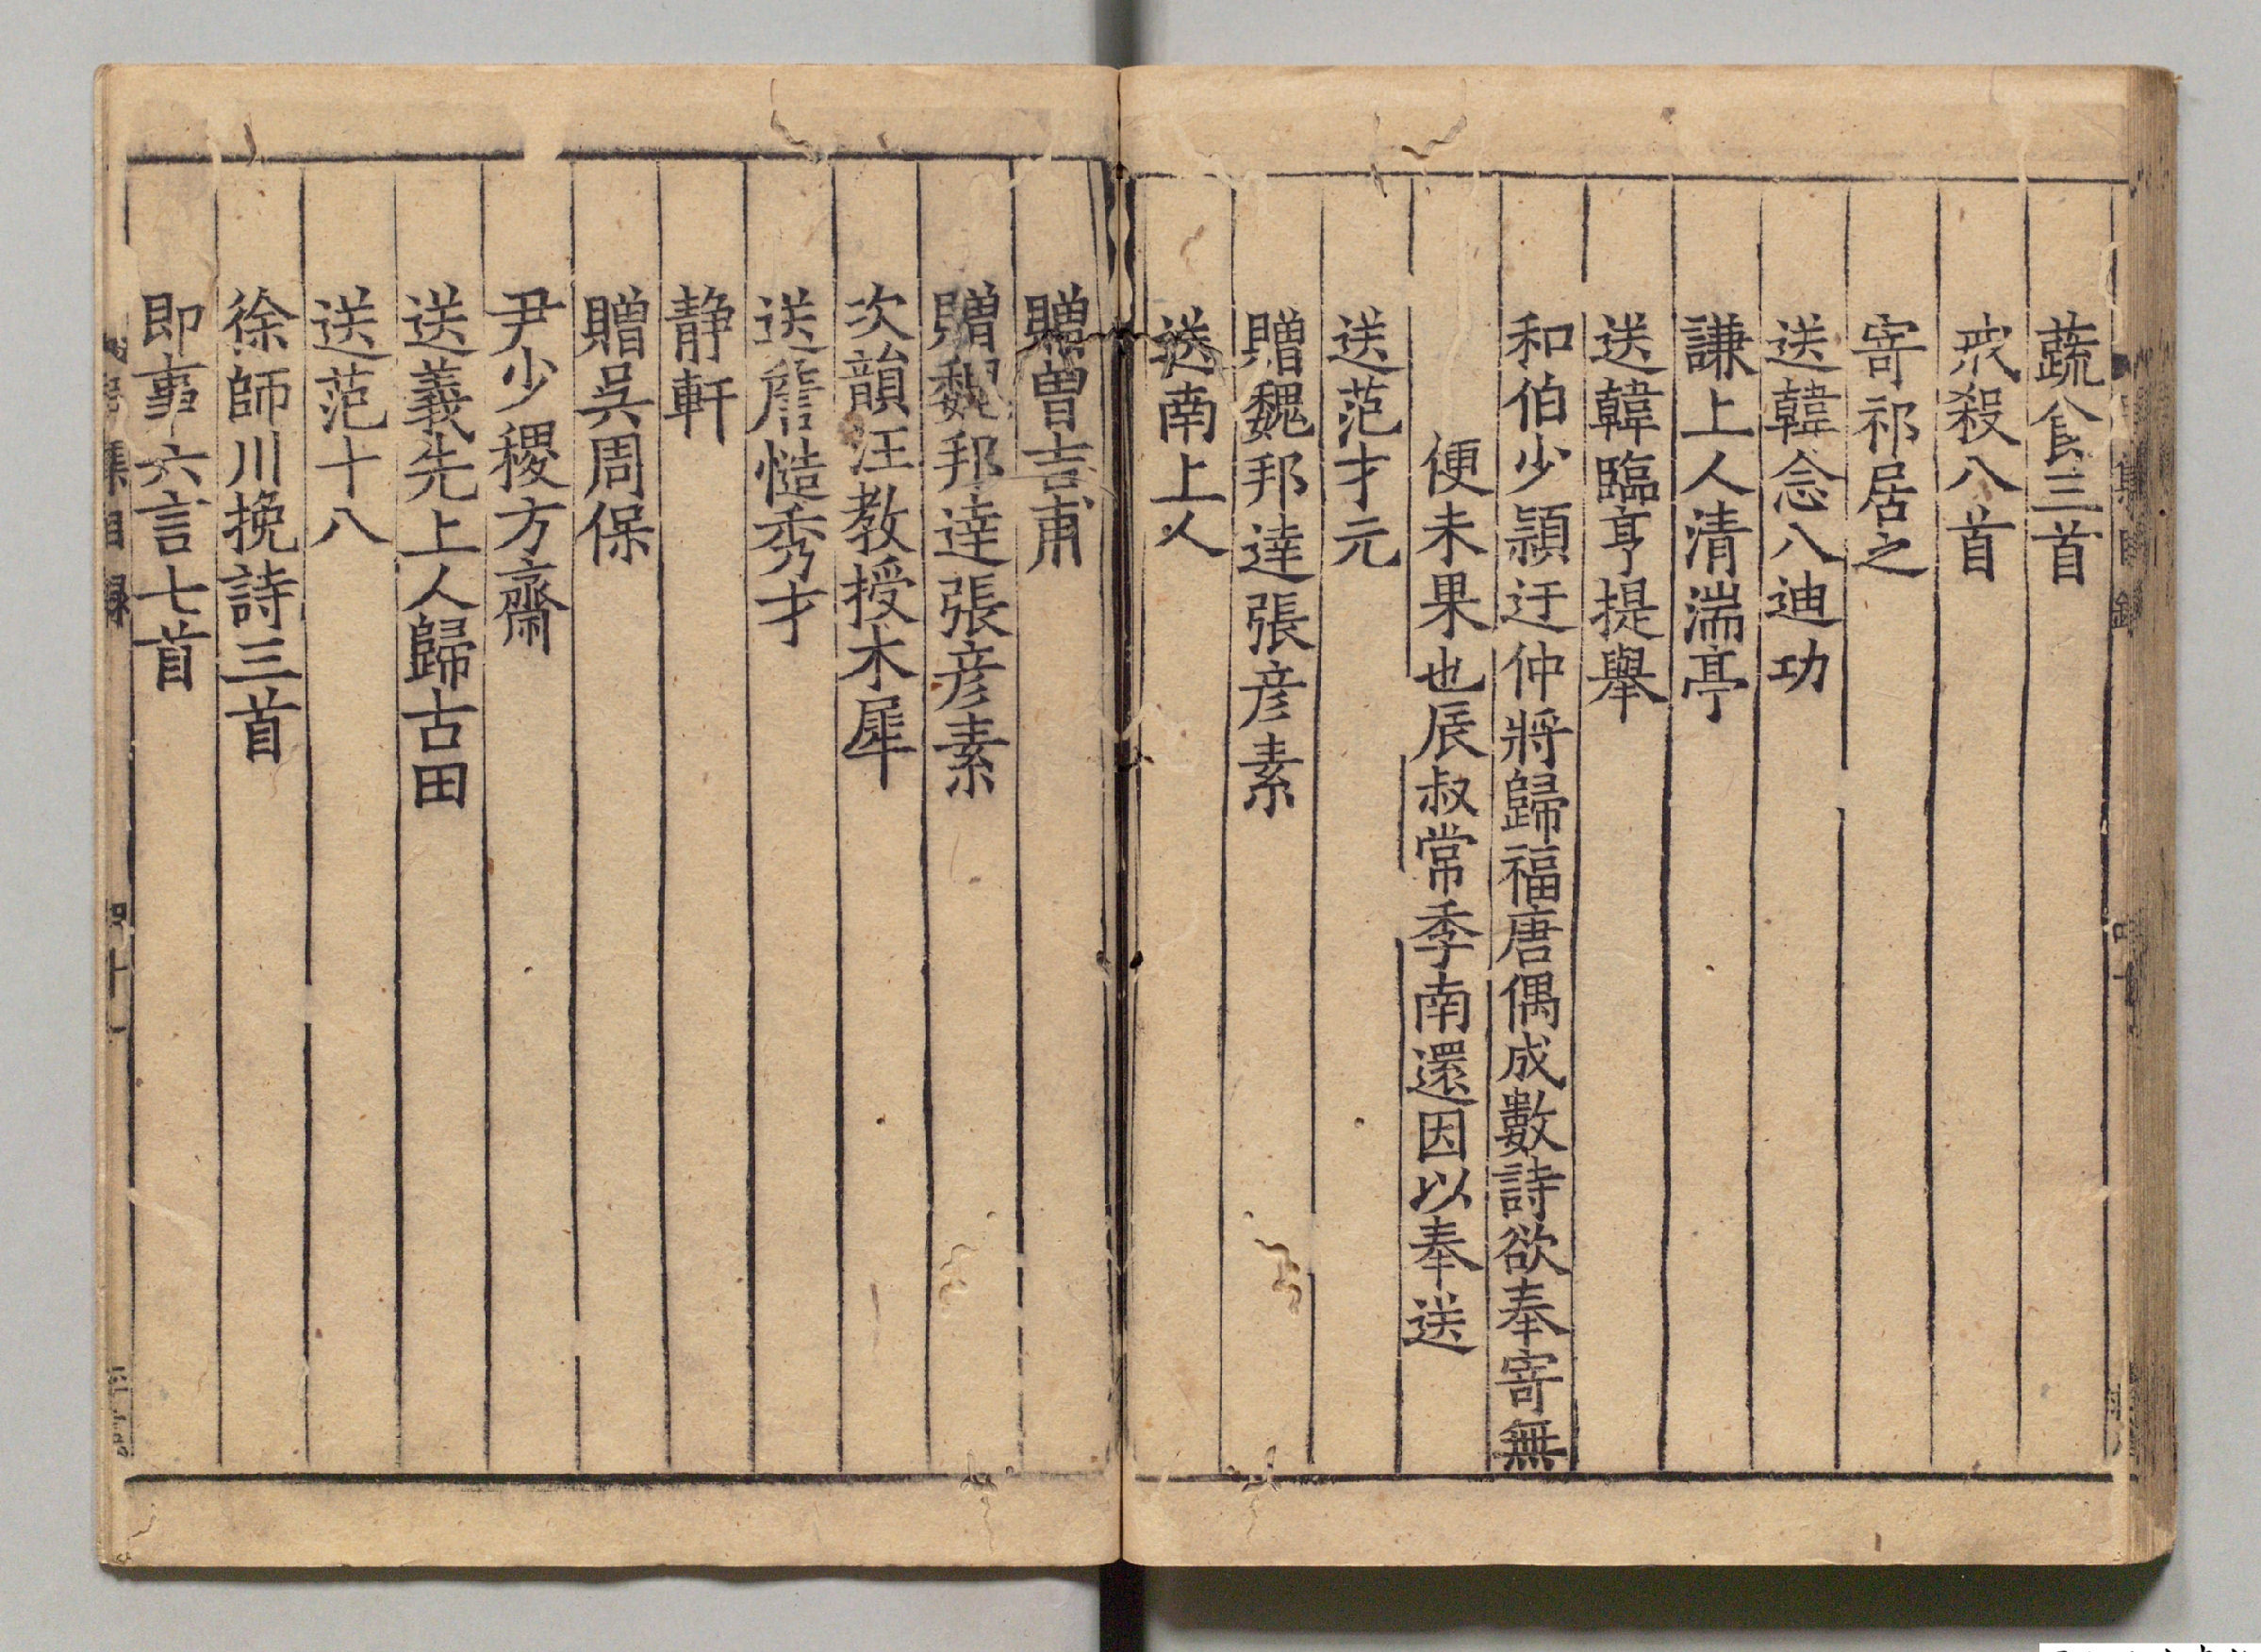 蔬食三首
戒殺八首
寄祁居之
送韓念八迪功
謙上人清湍亭
送韓臨亨提舉
和伯少穎迂仲將歸福唐偶成數詩欲奉寄無
便未果也辰叔常季南還因以奉送
送范才元
贈魏邦達張彦素
送南上人
贈曾吉甫
贈魏邦達張彦素
次韻汪教授木犀
送詹慥秀才
静軒
贈呉周保
尹少稷方齋
送義先上人歸古田
送范十八
徐師川挽詩三首
即事六言七首
集目録